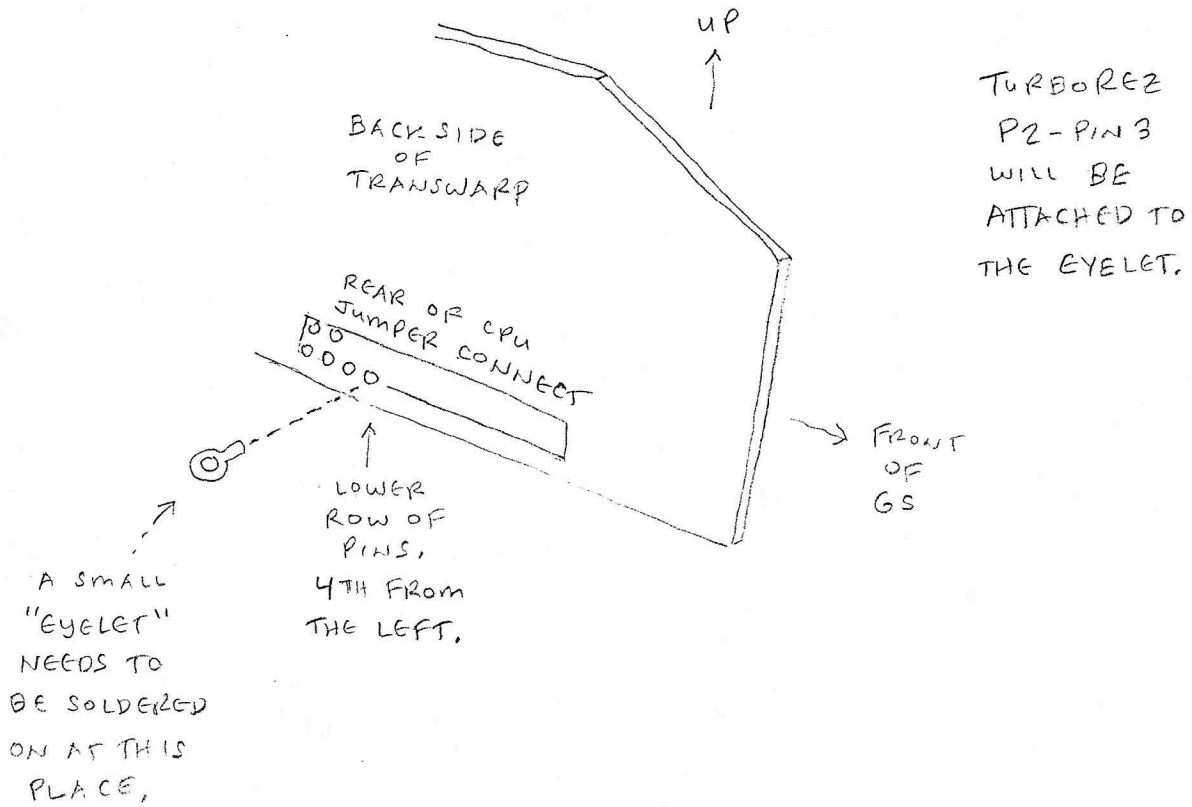 UP
TURBOREZ
P2-PIN 3
WILL BE
ATTACHED TO
THE EYELET.
BACK SIDE
OF
TRANSWARP
REAR OF CPU
JUMPER CONNECT
FRONT
OF
GS
LOWER
ROW OF
PINS,
4TH FROM
THE LEFT.
A SMALL
"EYELET"
NEEDS TO
BE SOLDERED
ON AT THIS
PLACE,